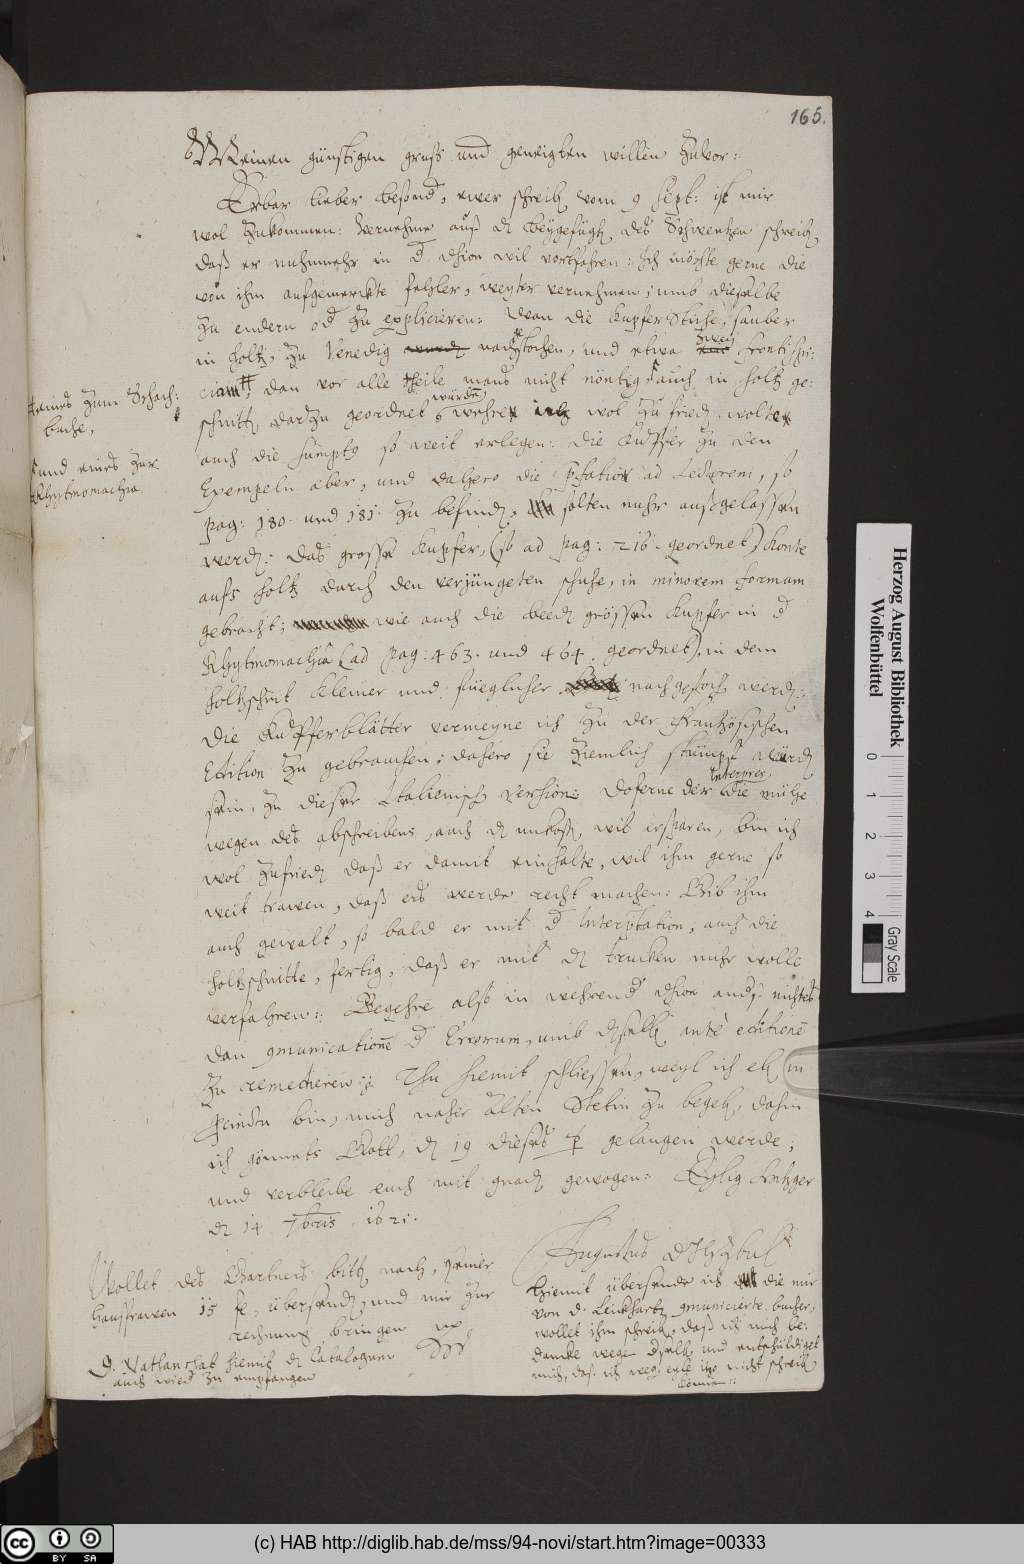 165.
Meinen günstigen gruß und geneigten willen zuvor:
Erbar lieber besond, ewer schreib vom 9 Sept: ist mir
wol zukommen: Vernehme auß beygefügt des Schwertzen schreib
daß er nuhnmehr in d vsion wil vortfahren: Ich möchte gerne die
von ihm aufgemerckte fehler, weyter vernehmen, umb dieselbe
zu endern od zu explicieren: Wan die Kupfer Stiche, sauber
in holtz, zu Venedig nachgestochen, und etwa zwey frontispi:
ciam, dan vor alle theile mans nicht nöhtig, auch in holtz ge:
schnitt, darzu geordnet würden, wehre ich wol zu fried, wolte
auch die sumpt so weit erlegen: die Kupffer zu den
Exempeln aber, und dahero die ad Lectorem, so
pag: 180. und 181. zu befind, solten nuhr außgelassen
werd: das grosse Kupfer, (so ad pag: 216. geordnet) konte
aufs holtz durch den verjüngeten schuhe, in minorem formam
gebracht; wie auch die beed grössen Kupfer in d
Rhytmomachia (ad pag: 463. und 464. geordnet), in dem
holtzschnit kleiner und füeglicher nachgestoch werd:
Die Kupfferblätter vermeyne ich zu der Frantzösischen
Edition zu gebrauchen; dahero sie ziemlich stümpf würd
sein, zu dieser Italienisch version: Doferne der Interpres die mühe
wegen des abschreibens, auch unkost, wil ersparen, bin ich
wol zufried daß er damit einhalte, wil ihm gerne so
weit trawen, daß ers werde recht machen: Gib ihm
auch gewalt, so bald er mit d Interptation, auch die
holtzschnitte, fertig, daß er mit trucken nuhr wolle
verfahren: Begehre also in wehrend vsion nichtes
dan cmunicationē d Errorum, umb dieselb ante editionē
zu remedieren: Thu hiemit schliessen, weyl ich
bin, mich naher alten Stetin zu begeb, dahin
ich gönnets Gott, 19 dieses gelangen werde;
und verbleibe euch mit gnad gewogen: Eylig Hitzger
14 7bris 1621.
Augustus
eines zum Schach:
buche,
und eines zur
Rhytmomachia.
Wollet des Gartners bitt nach, seiner
hausfrawen 15 übersend, und mir zur
rechnung bringen
hiemit Catalogum
auch wied zu empfangen
Hiemit übersende ich die mir
von cmunicierte bucher,
wollet ihm schreib, daß ich mich be:
dancke wege und entschuldiget
mich, das ich weg eyle itzo nicht schreib
können:
Herzog August Bibliothek
Wolfenbüttel
0 1 2 3 4
Gray Scale
cc BY SA
(c) HAB http://diglib.hab.de/mss/94-novi/start.htm?image=00333